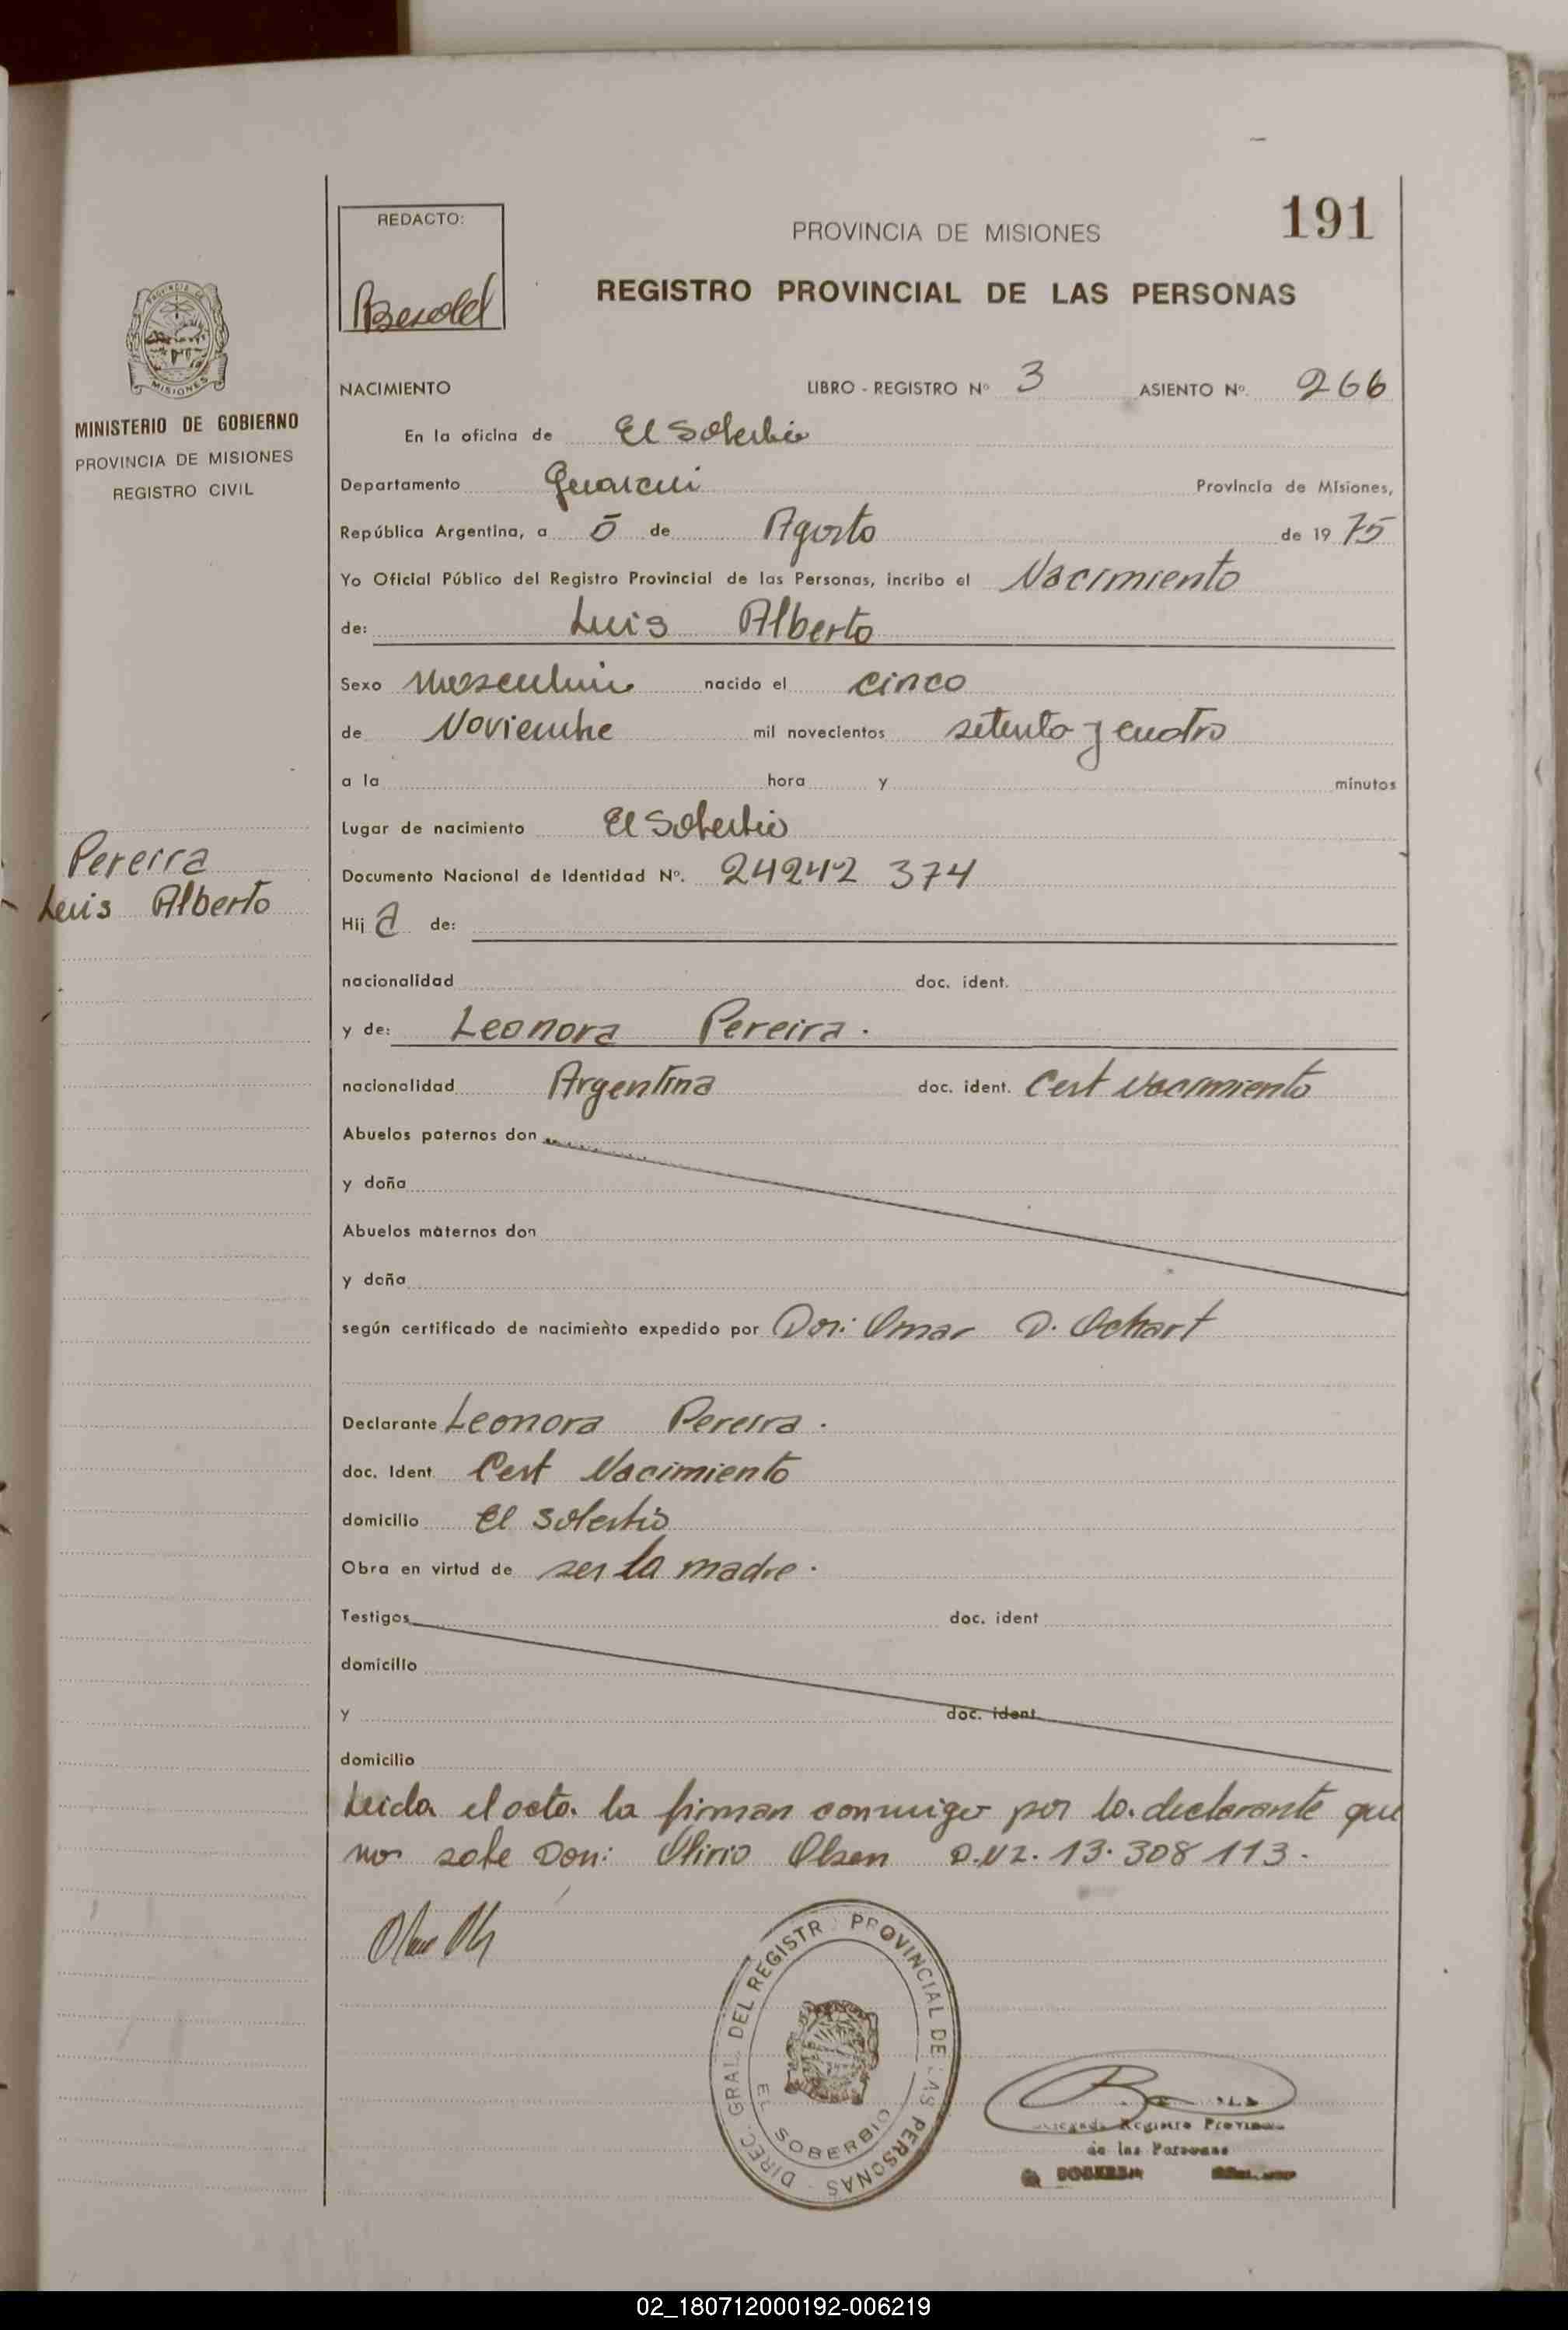 191
REDACTO:
PROVINCIA DE MISIONES
REGISTRO PROVINCIAL DE LAS PERSONAS
PROVINCIA DE
MISIONES
MINISTERIO DE GOBIERNO
PROVINCIA DE MISIONES
REGISTRO CIVIL
NACIMIENTO LIBRO - REGISTRO Nº 3 ASIENTO Nº. 266
En la oficina de El Soberbio
Departamento Guarani Provincia de Misiones,
República Argentina, a 5 de Agosto de 1975
Yo Oficial Público del Registro Provincial de las Personas, incribo el Nacimiento
de: Luis Alberto
Sexo Masculino nacido el cinco
de Noviembre mil novecientos setenta y cuatro
a la hora y minutos
Lugar de nacimiento El Soberbio
Pereira
Luis Alberto
Documento Nacional de Identidad Nº. 24242 374
Hij a de:
nacionalidad doc. ident.
y de: Leonora Pereira.
nacionalidad Argentina doc. ident. Cert Nacimiento
Abuelos paternos don
y doña
Abuelos maternos don
y doña
según certificado de nacimiento expedido por Don: Omar D. Ochart
Declarante Leonora Pereira.
doc. Ident. Cert Nacimiento
domicilio El Soberbio
Obra en virtud de ser la madre.
Testigos doc. ident
domicilio
y doc. ident
domicilio
Leida el acta. la firman conmigo por la declarante que
no sabe Don: Olirio Olsen D.N2. 13.308 113.
DIREC. GRAL. DEL REGISTR PROVINCIAL DE LAS PERSONAS
EL SOBERBIO
Registro Provincial
de las Personas
02_180712000192-006219